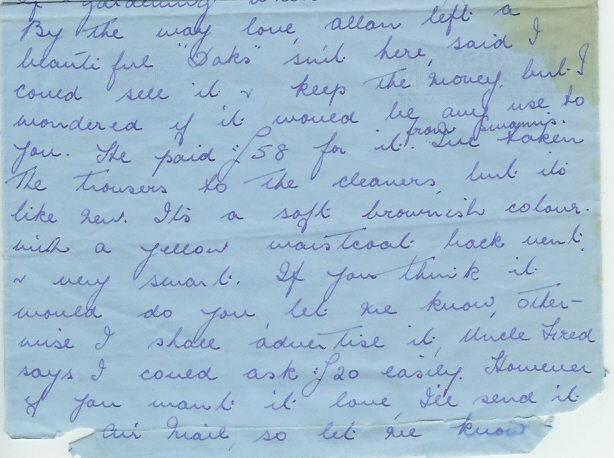 of gardening
By the way love, allan left a
beautiful "Daks" suit here, said I
could sell it & keep the money, but I
wondered if it would be any use to
you. He paid £58 for it. from Simpsons. I've taken
the trousers to the cleaners, but it's
like new. It's a soft brownish colour.
with a yellow waistcoat back vent
& very smart. If you think it
would do you let me know, other-
wise I shall advertise it, Uncle Fred
says I could ask £20 easily. However
if you want it love, I'll send it
air mail, so let me know